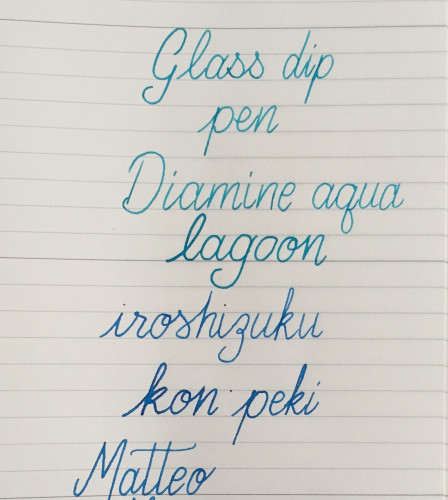 Glass dip
pen
Diamine aqua
lagoon
iroshizuku
kon-peki
Matteo